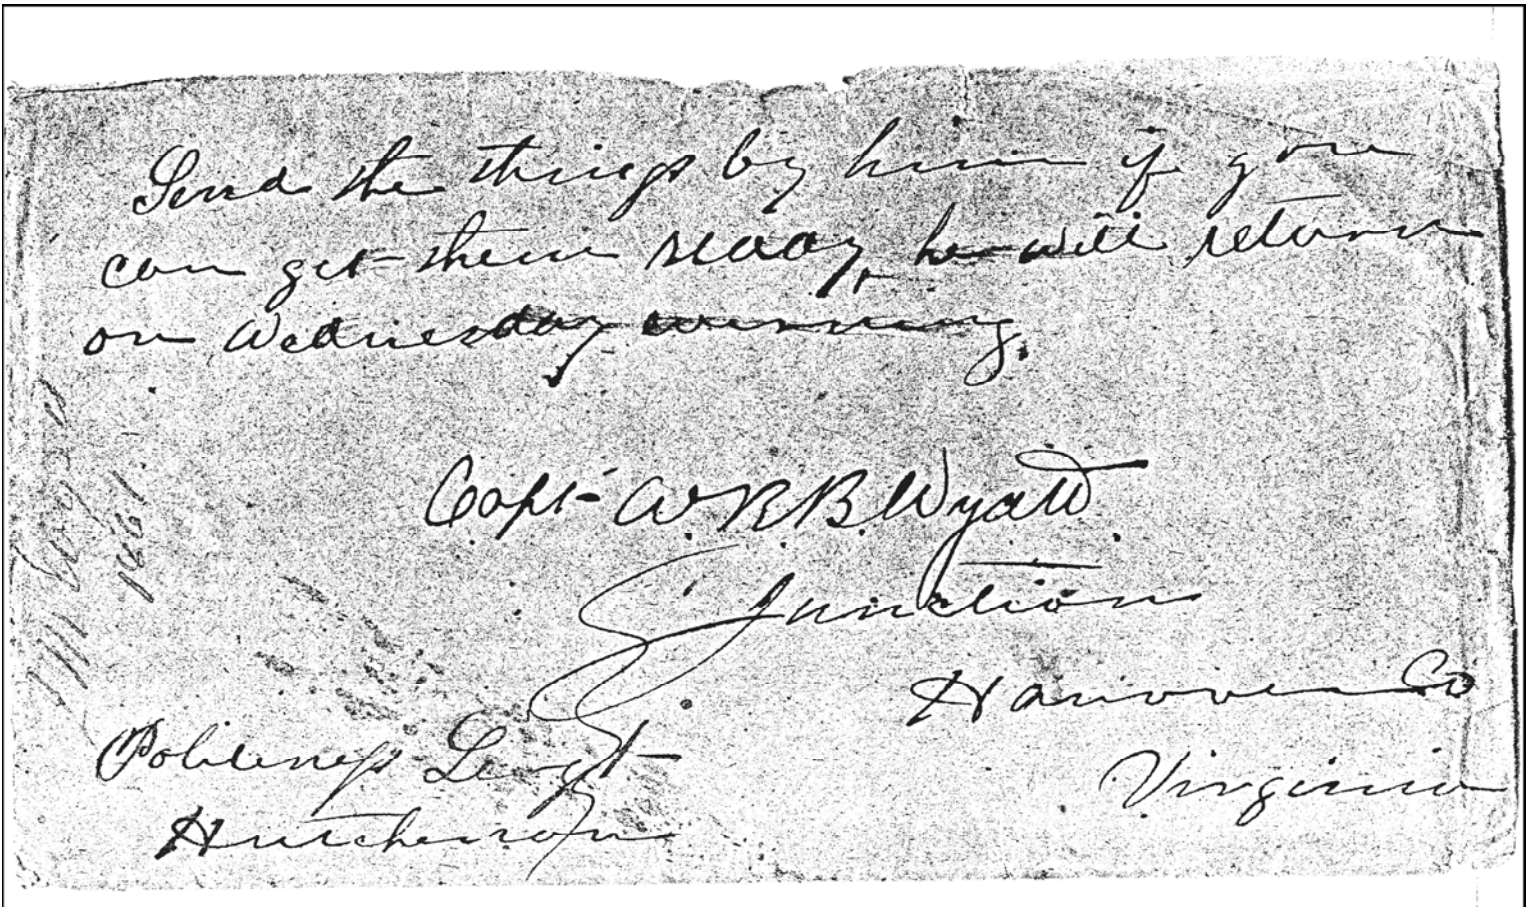 Send the things by him if you
can get them ready, he will return
on Wednesday evening.
Capt W R B Wyatt
Junction
Hanover Co
Virginia
Politeness Sergt
Hutcherson
1861